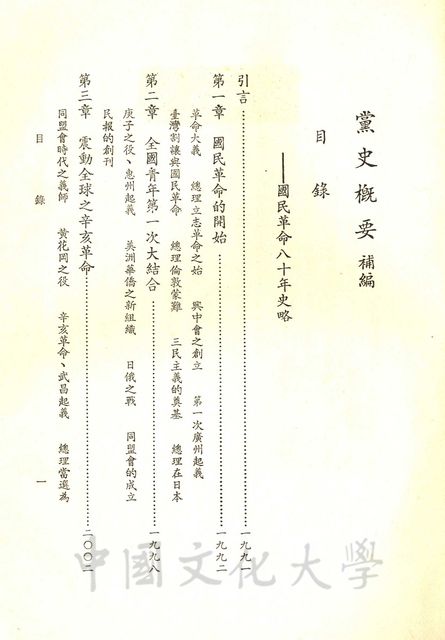 黨史概要 補編
目錄
——國民革命八十年史略
引言……一九九一
第一章 國民革命的開始……一九九二
革命大義 總理立志革命之始 興中會之創立 第一次廣州起義
臺灣割讓與國民革命 總理倫敦蒙難 三民主義的奠基 總理在日本
第二章 全國青年第一次大結合……一九九八
庚子之役、惠州起義 美洲華僑之新組織 日俄之戰 同盟會的成立
民報的創刊
第三章 震動全球之辛亥革命……二〇〇二
同盟會時代之義師 黃花岡之役 辛亥革命、武昌起義 總理當選為
目錄 一
中國文化大學